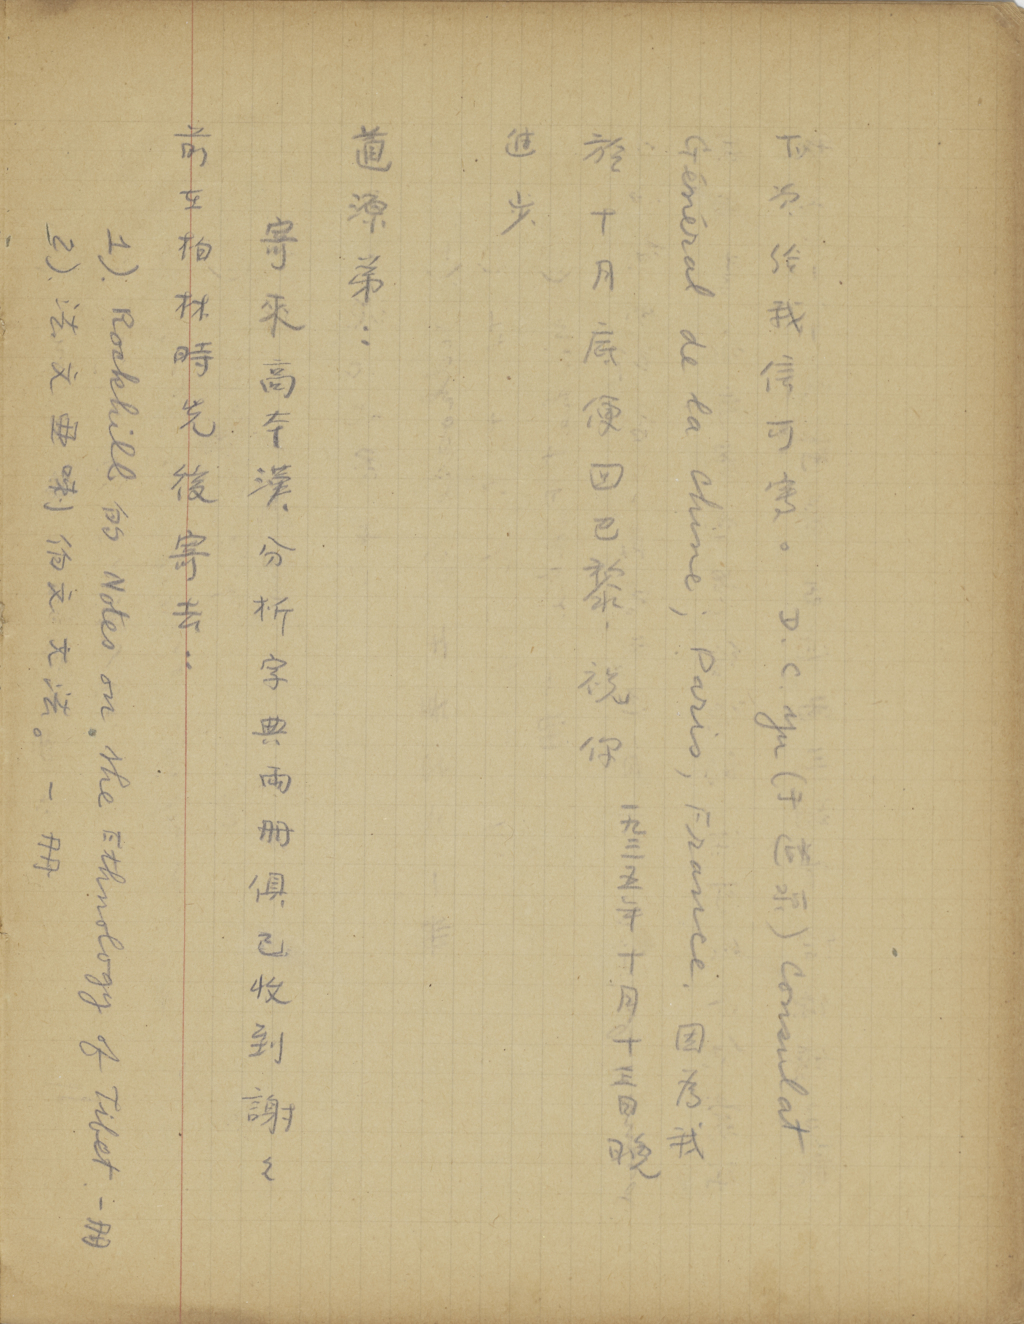 下次給我信可寄。D.C. Yu (于道泉) Consulat
Général de la Chine, Paris, France. 因為我
於十月底便回巴黎. 祝你
進步
一九三五年十月十三日晚
道源弟：
寄來高本漢分析字典兩冊俱已收到謝々
前在柏林時先後寄去：
1). Rockhill 的 Notes on the Ethnology of Tibet. 一冊
2). 法文 文法。一冊